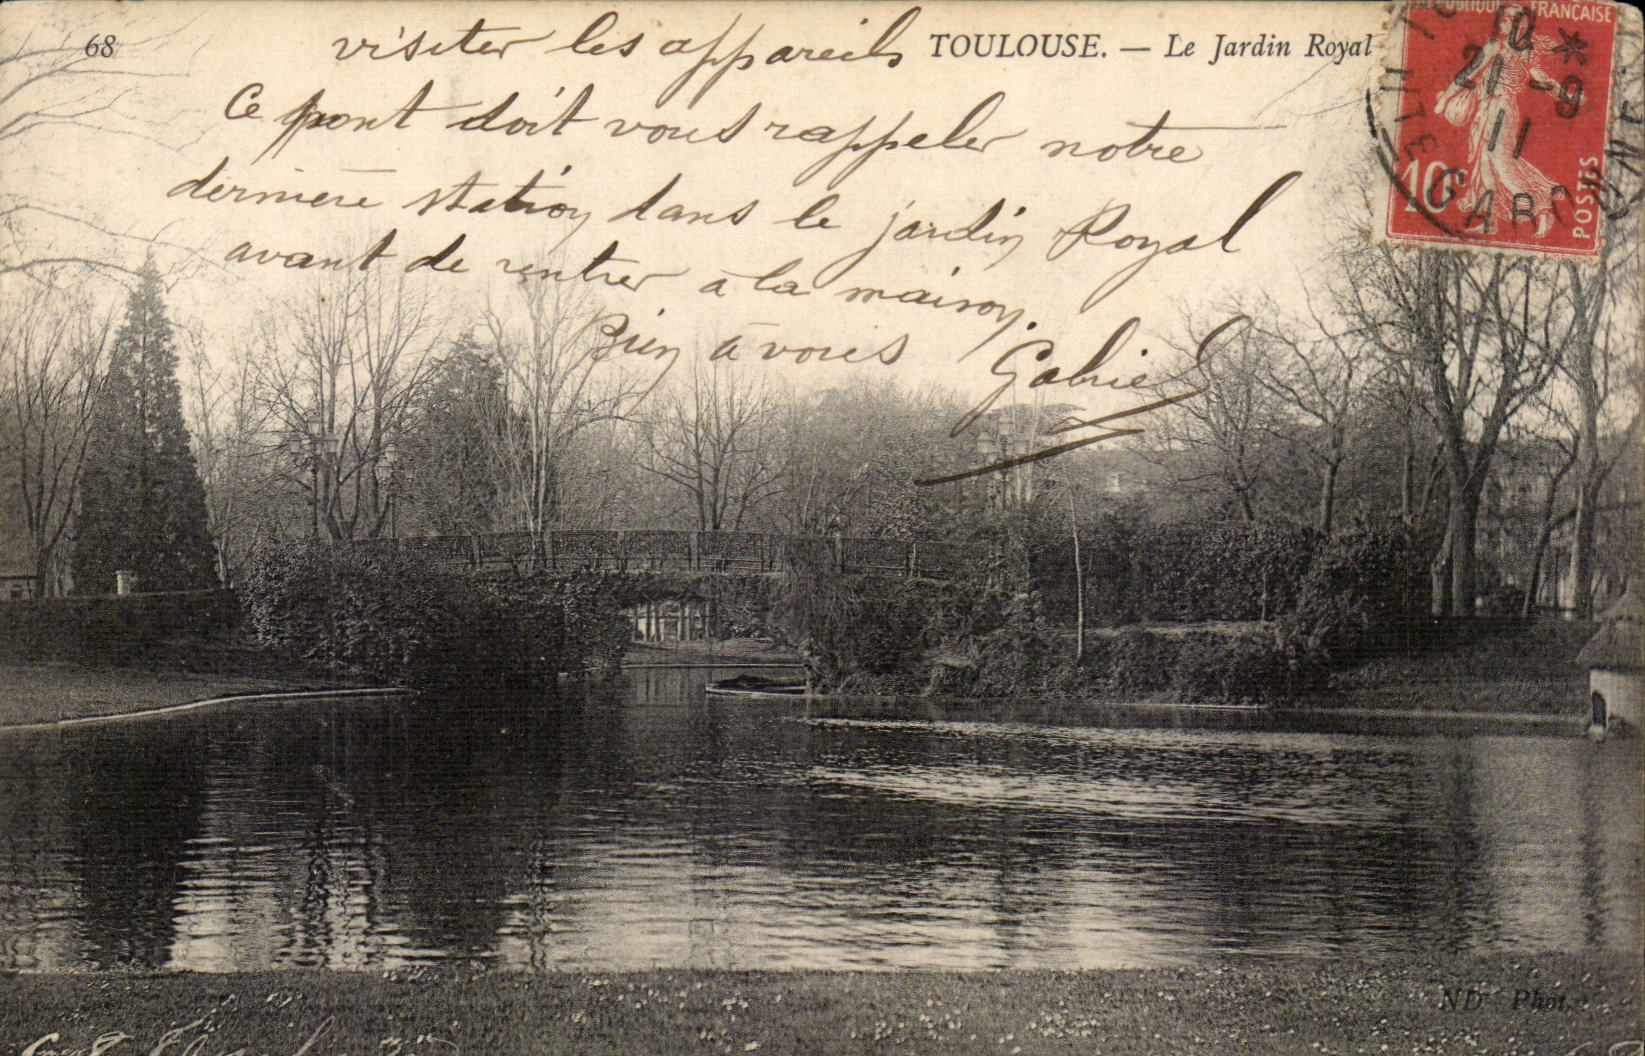 68
visiter les appareils
TOULOUSE. — Le Jardin Royal
Ce pont doit vous rappeler notre
dernière station dans le jardin Royal
avant de rentrer à la maison.
Bien à vous Gabriel
RÉPUBLIQUE FRANÇAISE
10
POSTES
10 *
21 - 9
11
HTE GARONNE
ND Phot.